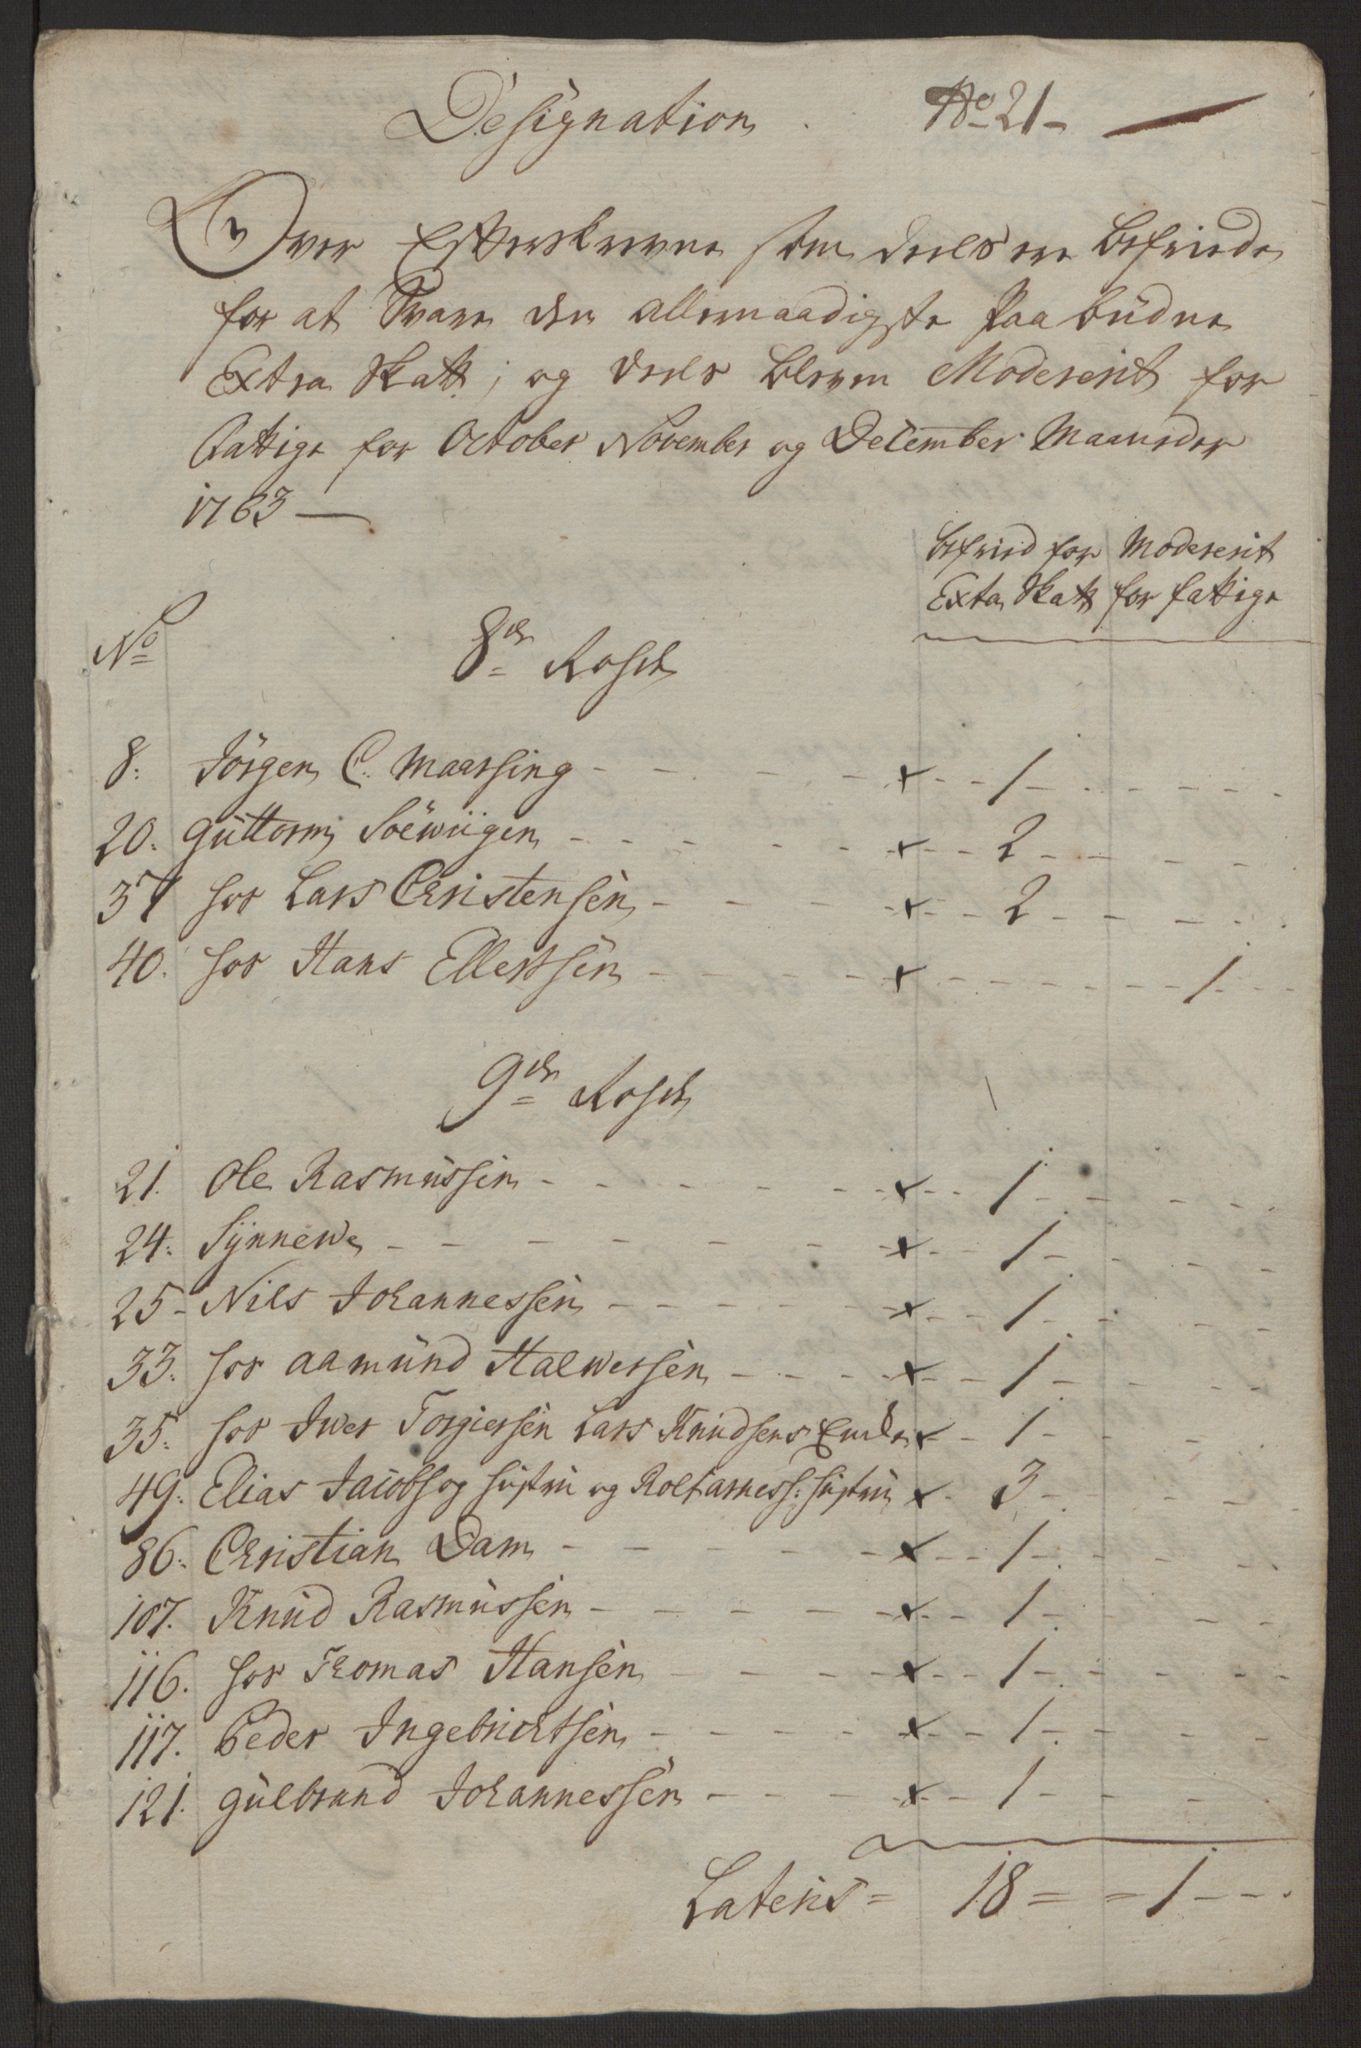 Designation
No 21
Over Efterskrevne som deels ere befriede
for at Svare den allernaadigste Paabudne
Extra Skatt, og deels bleven Modererit for
fattige for October November og December Maaneder
1763
befried for Modererit
Exta Skatt for fattige
No
8de Rohde
8. Jörgen C. Maarsing - x - 1
20. Guttorm Soëwiigen - x - 2
37 for Lars Christensen - x - 2
40. for Hans Ellertsen - x - 1
9de Rohde
21. Ole Rasmussen - x - 1
24. Synnewe - x - 1
25 - Nils Johannessen - x - 1
33. for Aamund Halwersen - x - 1
35. for Iwer Torgiersen Lars Knudsens Encke x - 1
49. Elias Jacobs og hustru og Rolf arness: hustru x - 3
86. Christian Dam - x - 1
107. Knud Rasmussen - x - 1
116. for Thomas Hansen - x - 1
117. Peder Ingebrichtsen - x - 1
121. Gulbrand Johannessen - x - 1
Lateris = 18 = = 1